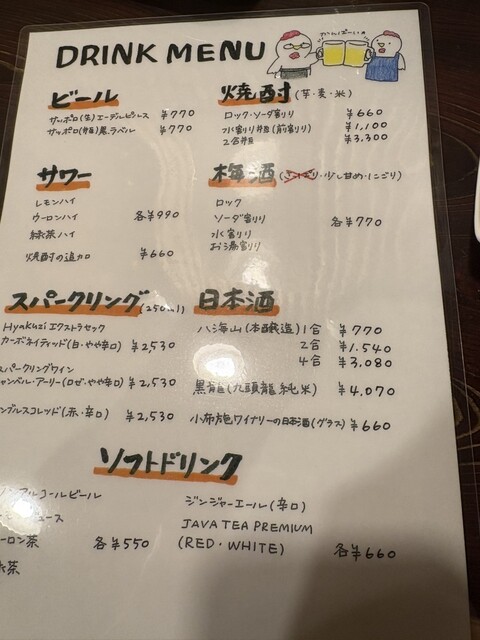 DRINK MENU
かんぱーい
ビール
サッポロ(生)エーデルピルス ¥770
サッポロ(中瓶)黒ラベル ¥770
焼酎(芋・麦・米)
ロック・ソーダ割り ¥660
水割り ¥1,100
2合 ¥3,300
サワー
レモンハイ
ウーロンハイ 各¥990
緑茶ハイ
焼酎の追加 ¥660
梅酒(さっぱり・少し甘め・にごり)
ロック
ソーダ割り 各¥770
水割り
お湯割り
スパークリング(250ml)
Hyakuzi エクストラセック
カーボネイティッド(白・やや辛口) ¥2,530
スパークリングワイン
キャンベル・アーリー(ロゼ・やや辛口) ¥2,530
ンブルスコレッド(赤・辛口) ¥2,530
日本酒
八海山(本醸造) 1合 ¥770
2合 ¥1,540
4合 ¥3,080
黒龍(九頭龍純米) ¥4,070
小布施ワイナリーの日本酒(グラス) ¥660
ソフトドリンク
ノンアルコールビール
ュース
ーロン茶 各¥550
茶
ジンジャーエール(辛口)
JAVA TEA PREMIUM
(RED・WHITE) 各¥660